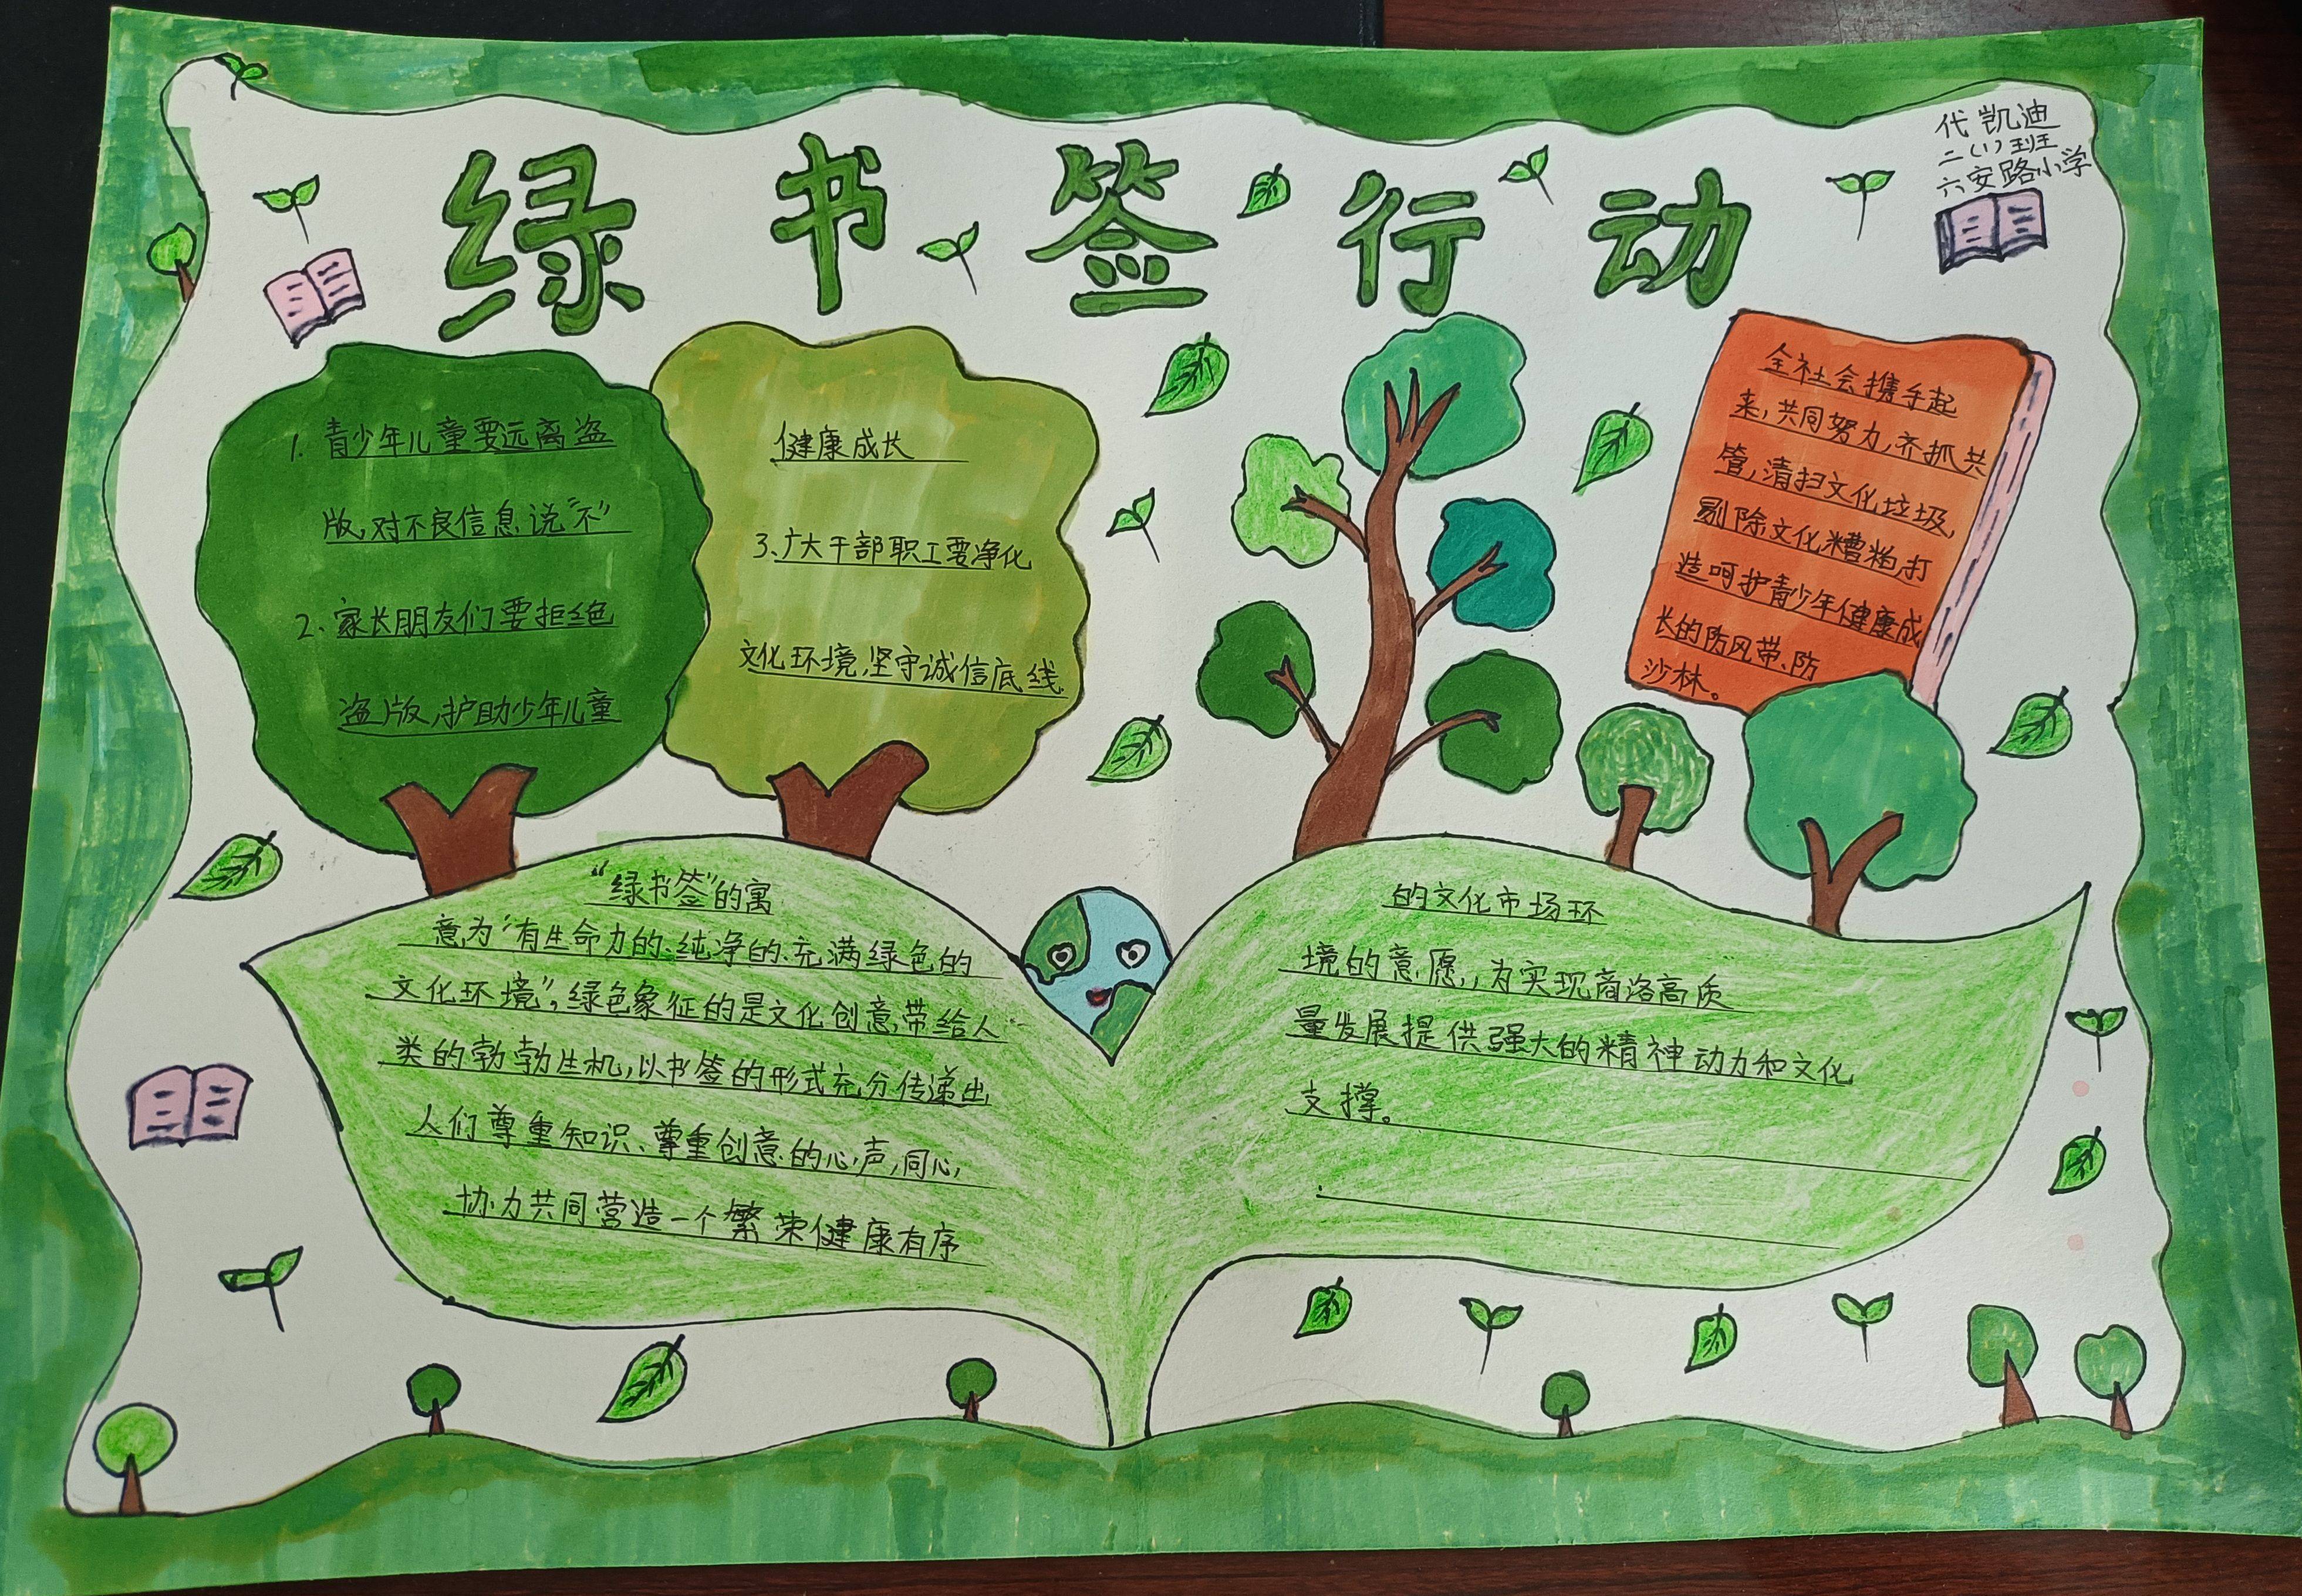 绿书签行动
代凯迪
二(1)班
六安路小学
1. 青少年儿童要远离盗
版,对不良信息说“不”
2、家长朋友们要拒绝
盗版,护助少年儿童
健康成长
3、广大干部职工要净化
文化环境,坚守诚信底线
全社会携手起
来,共同努力,齐抓共
管,清扫文化垃圾,
剔除文化糟粕,打
造呵护青少年健康成
长的防风带、防
沙林。
“绿书签”的寓
意为“有生命力的、纯净的、充满绿色的
文化环境”,绿色象征的是文化创意,带给人
类的勃勃生机,以书签的形式充分传递出
人们尊重知识、尊重创意的心声,同心,
协力共同营造一个繁荣健康有序
的文化市场环
境的意愿,,为实现商洛高质
量发展提供强大的精神动力和文化
支撑。